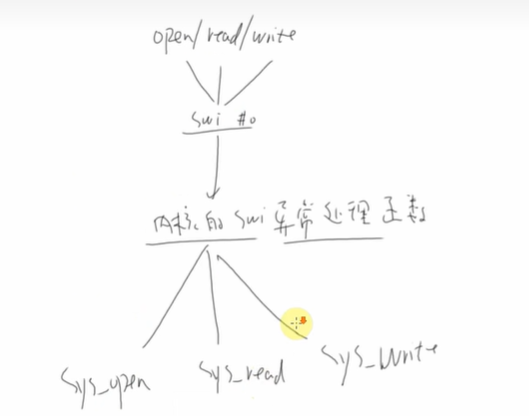 open/read/write
swi #0
内核的 swi 异常处理函数
sys_open sys_read sys_write